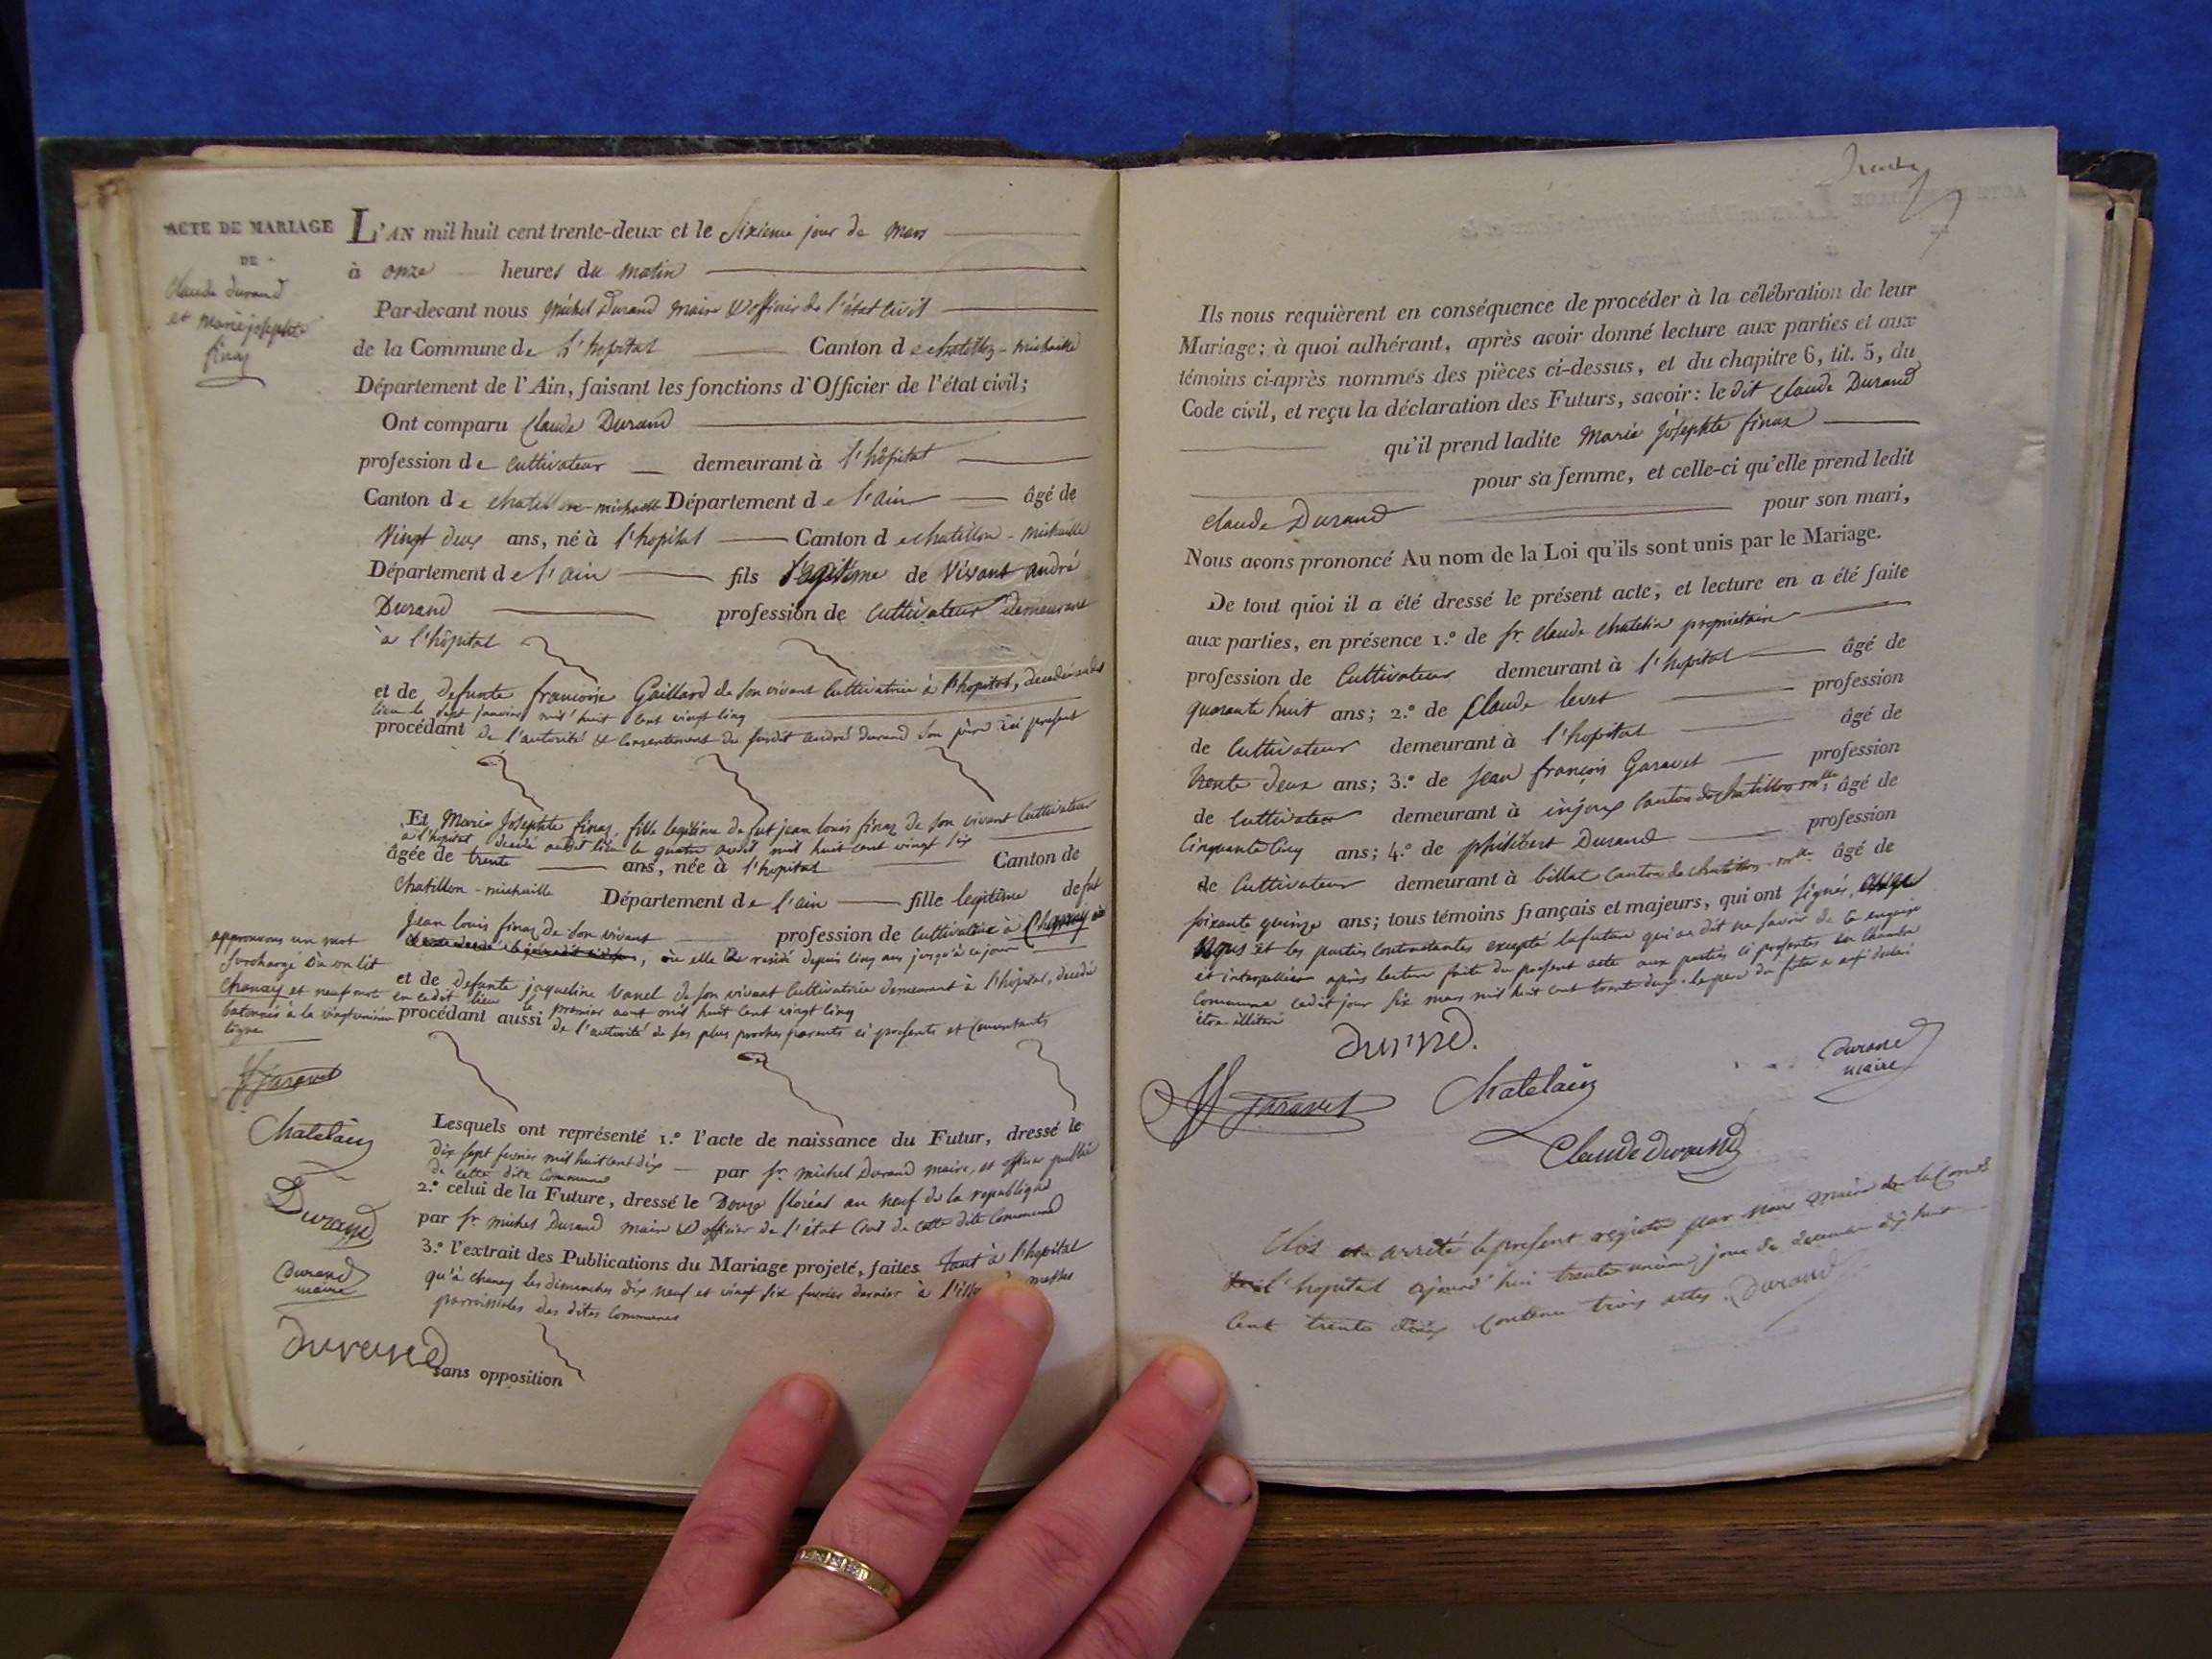 ACTE DE MARIAGE
DE
Claude durand
et marie josephte
finaz
L'AN mil huit cent trente-deux et le sixieme jour de mars
à onze heures du matin
Par-devant nous michel Durand maire & officier de l'état civil
de la Commune de L'hopital Canton de chatillon-michaille
Département de l'Ain, faisant les fonctions d'Officier de l'état civil;
Ont comparu Claude Durand
profession de cultivateur demeurant à l'hôpital
Canton de chatillon-michaille Département de l'ain âgé de
Vingt deux ans, né à l'hopital Canton de chatillon-michaille
Département de l'ain fils legitime de vivant andré
Durand profession de cultivateur demeurant
à l'hôpital
et de defunte francoise Gaillard de son vivant cultivatrice à l'hopital, decedée audit
lieu le sept janvier mil huit cent vingt cinq
procédant de l'autorité & consentement du susdit andré durand son père ici present
Et Marie Josephte finaz, fille legitime de fut jean louis finaz de son vivant cultivateur
a l'hopital decédé audit lieu le quatre avril mil huit cent vingt six
âgée de trente ans, née à l'hopital Canton de
Chatillon-michaille Département de l'ain fille legitime de fut
Jean louis finaz de son vivant profession de cultivateur à Chanay
, où elle a residé depuis cinq ans jusqu'à ce jour
et de defunte jaqueline Vanel de son vivant cultivatrice demeurant à l'hôpital, decedée
en cedit lieu le premier aout mil huit cent vingt cinq
procédant aussi de l'autorité de ses plus proches parents ci presents et consentants
approuvons un mot
surchargé où on lit
chanay et neuf mots
batonnés à la vingt unieme
ligne
Garavet
Chatelain
Durand
Durand
maire
durand
Lesquels ont représenté 1.º l'acte de naissance du Futur, dressé le
dix sept fevrier mil huit cent dix par sr. michel Durand maire, et officier public
de cette dite Commune
2.º celui de la Future, dressé le Douze floréal an neuf de la republique
par sr. michel Durand maire & officier de l'état civil de cette dite Commune
3.º l'extrait des Publications du Mariage projeté, faites tant à l'hopital
qu'à chanay les dimanches dix neuf et vingt six fevrier dernier à messes
parroissiales des dites communes
sans opposition
Ils nous requièrent en conséquence de procéder à la célébration de leur
Mariage; à quoi adhérant, après avoir donné lecture aux parties et aux
témoins ci-après nommés des pièces ci-dessus, et du chapitre 6, tit. 5, du
Code civil, et reçu la déclaration des Futurs, savoir: le dit Claude Durand
qu'il prend ladite Marie Josephte finaz
pour sa femme, et celle-ci qu'elle prend ledit
Claude Durand pour son mari,
Nous avons prononcé Au nom de la Loi qu'ils sont unis par le Mariage.
De tout quoi il a été dressé le présent acte, et lecture en a été faite
aux parties, en présence 1.º de sr. Claude chatelain propriétaire
profession de Cultivateur demeurant à l'hopital âgé de
quarante huit ans; 2.º de Claude levet profession
de Cultivateur demeurant à l'hopital âgé de
trente deux ans; 3.º de Jean françois Garavet profession
de Cultivateur demeurant à injoux canton de chatillon mlle. âgé de
Cinquante cinq ans; 4.º de philibert Durand profession
de Cultivateur demeurant à billiat canton de chatillon-mlle âgé de
soixante quinze ans; tous témoins français et majeurs, qui ont signés,
Nous et les parties contractantes excepté la future qui a dit ne savoir de ce enquise
et interpellée après lecture faite du present acte aux parties ci presentes en chambre
Commune cedit jour six mars mil huit cent trente deux. le pere du futur a aussi declaré
être illitéré
durand.
Garavet
Chatelain
Durand
maire
Claude durand
Clos et arreté le present registre par nous maire de la Com.
l'hopital ajourd'hui trente unième jour de decembre dix huit
cent trente deux contenu trois actes. Durand